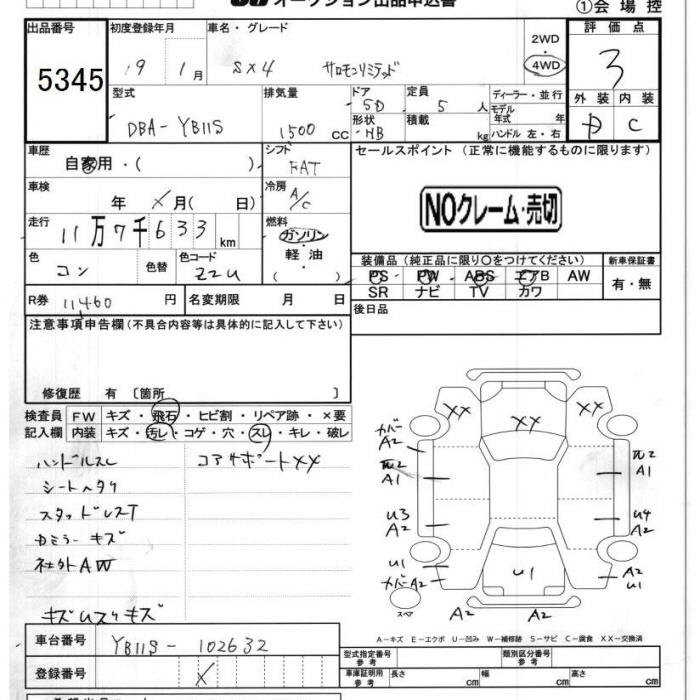 オークション出品申込書
①会場控
出品番号 初度登録年月 車名・グレード 2WD・4WD 評価点
5345 19 1月 SX4 サロモンリミテッド 3
型式 排気量 ドア 定員 ディーラー・並行
DBA-YB11S 1500cc 5D 5人 モデル年式 年
形状 HB 積載 kg ハンドル 左・右
外装 内装
D C
車歴 シフト セールスポイント (正常に機能するものに限ります)
自家用・( ) FAT
車検 年 X月( 日) 冷房 A/C
NOクレーム・売切
走行 11万7千633km 燃料 ガソリン・軽油
( )
色 色替 色コード
コン ZZU
装備品 (純正品に限り○をつけてください) 新車保証書
PS PW ABS エアB AW 有・無
SR ナビ TV カワ
R券 11460円 名変期限 月 日 後日品
注意事項申告欄(不具合内容等は具体的に記入して下さい)
修復歴 有 〔箇所 〕
検査員 FW キズ・飛石・ヒビ割・リペア跡・×要
記入欄 内装 キズ・汚レ・コゲ・穴・スレ・キレ・破レ
ハンドルスレ コアサポートXX
シートヘタリ
スタッドレスT
Dミラーキズ
社外AW
XX XX XX
カバーA2
A2
A1 A1
U3 A2 U4 A2
U1 カバーA2 U1 A2 U1
スペア A2 A2
A-キズ E-エクボ U-凹み W-補修跡 S-サビ C-腐食 XX-交換済
車台番号 YB11S-102632
登録番号 X
型式指定番号 参考 類別区分番号 参考
車庫証明用 参考 長さ cm 幅 cm 高さ cm